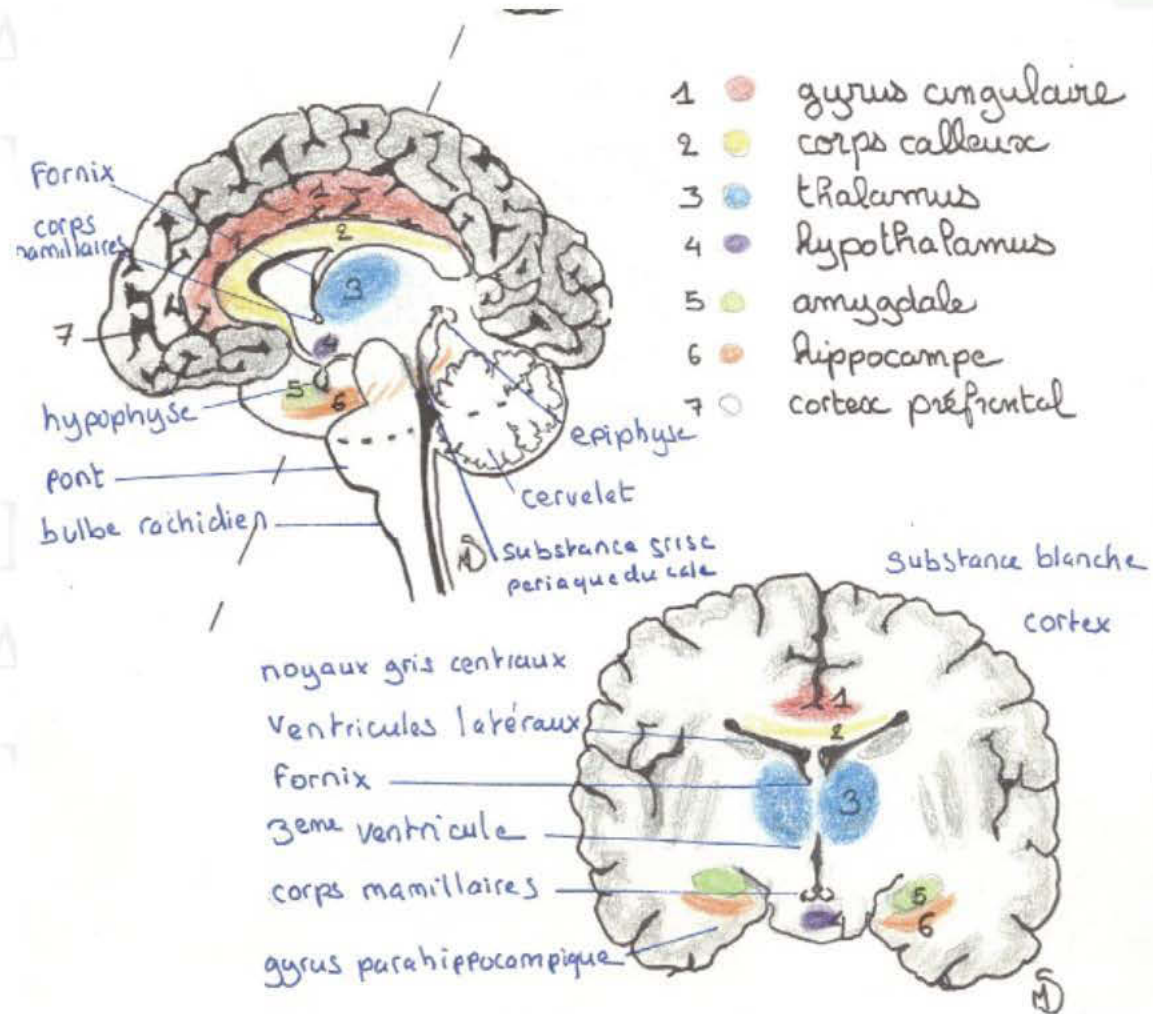 1 gyrus cingulaire
2 corps calleux
3 thalamus
4 hypothalamus
5 amygdale
6 hippocampe
7 cortex préfrontal
Fornix
corps
mamillaires
7
hypophyse
pont
bulbe rachidien
1
2
3
4
5
6
epiphyse
cervelet
substance grise
periaqueducale
MD
substance blanche
cortex
noyaux gris centraux
ventricules latéraux
fornix
3eme ventricule
corps mamillaires
gyrus parahippocampique
1
2
3
5
6
MD